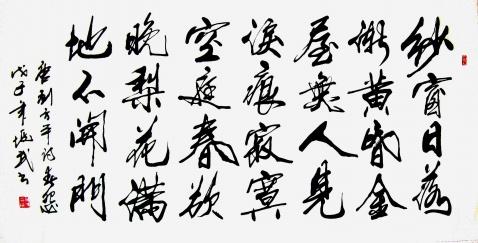 紗窗日落
漸黄昏金
屋無人見
淚痕寂寞
空庭春欲
晚梨花滿
地不開門
唐刘方平詩春怨
戊子年武书